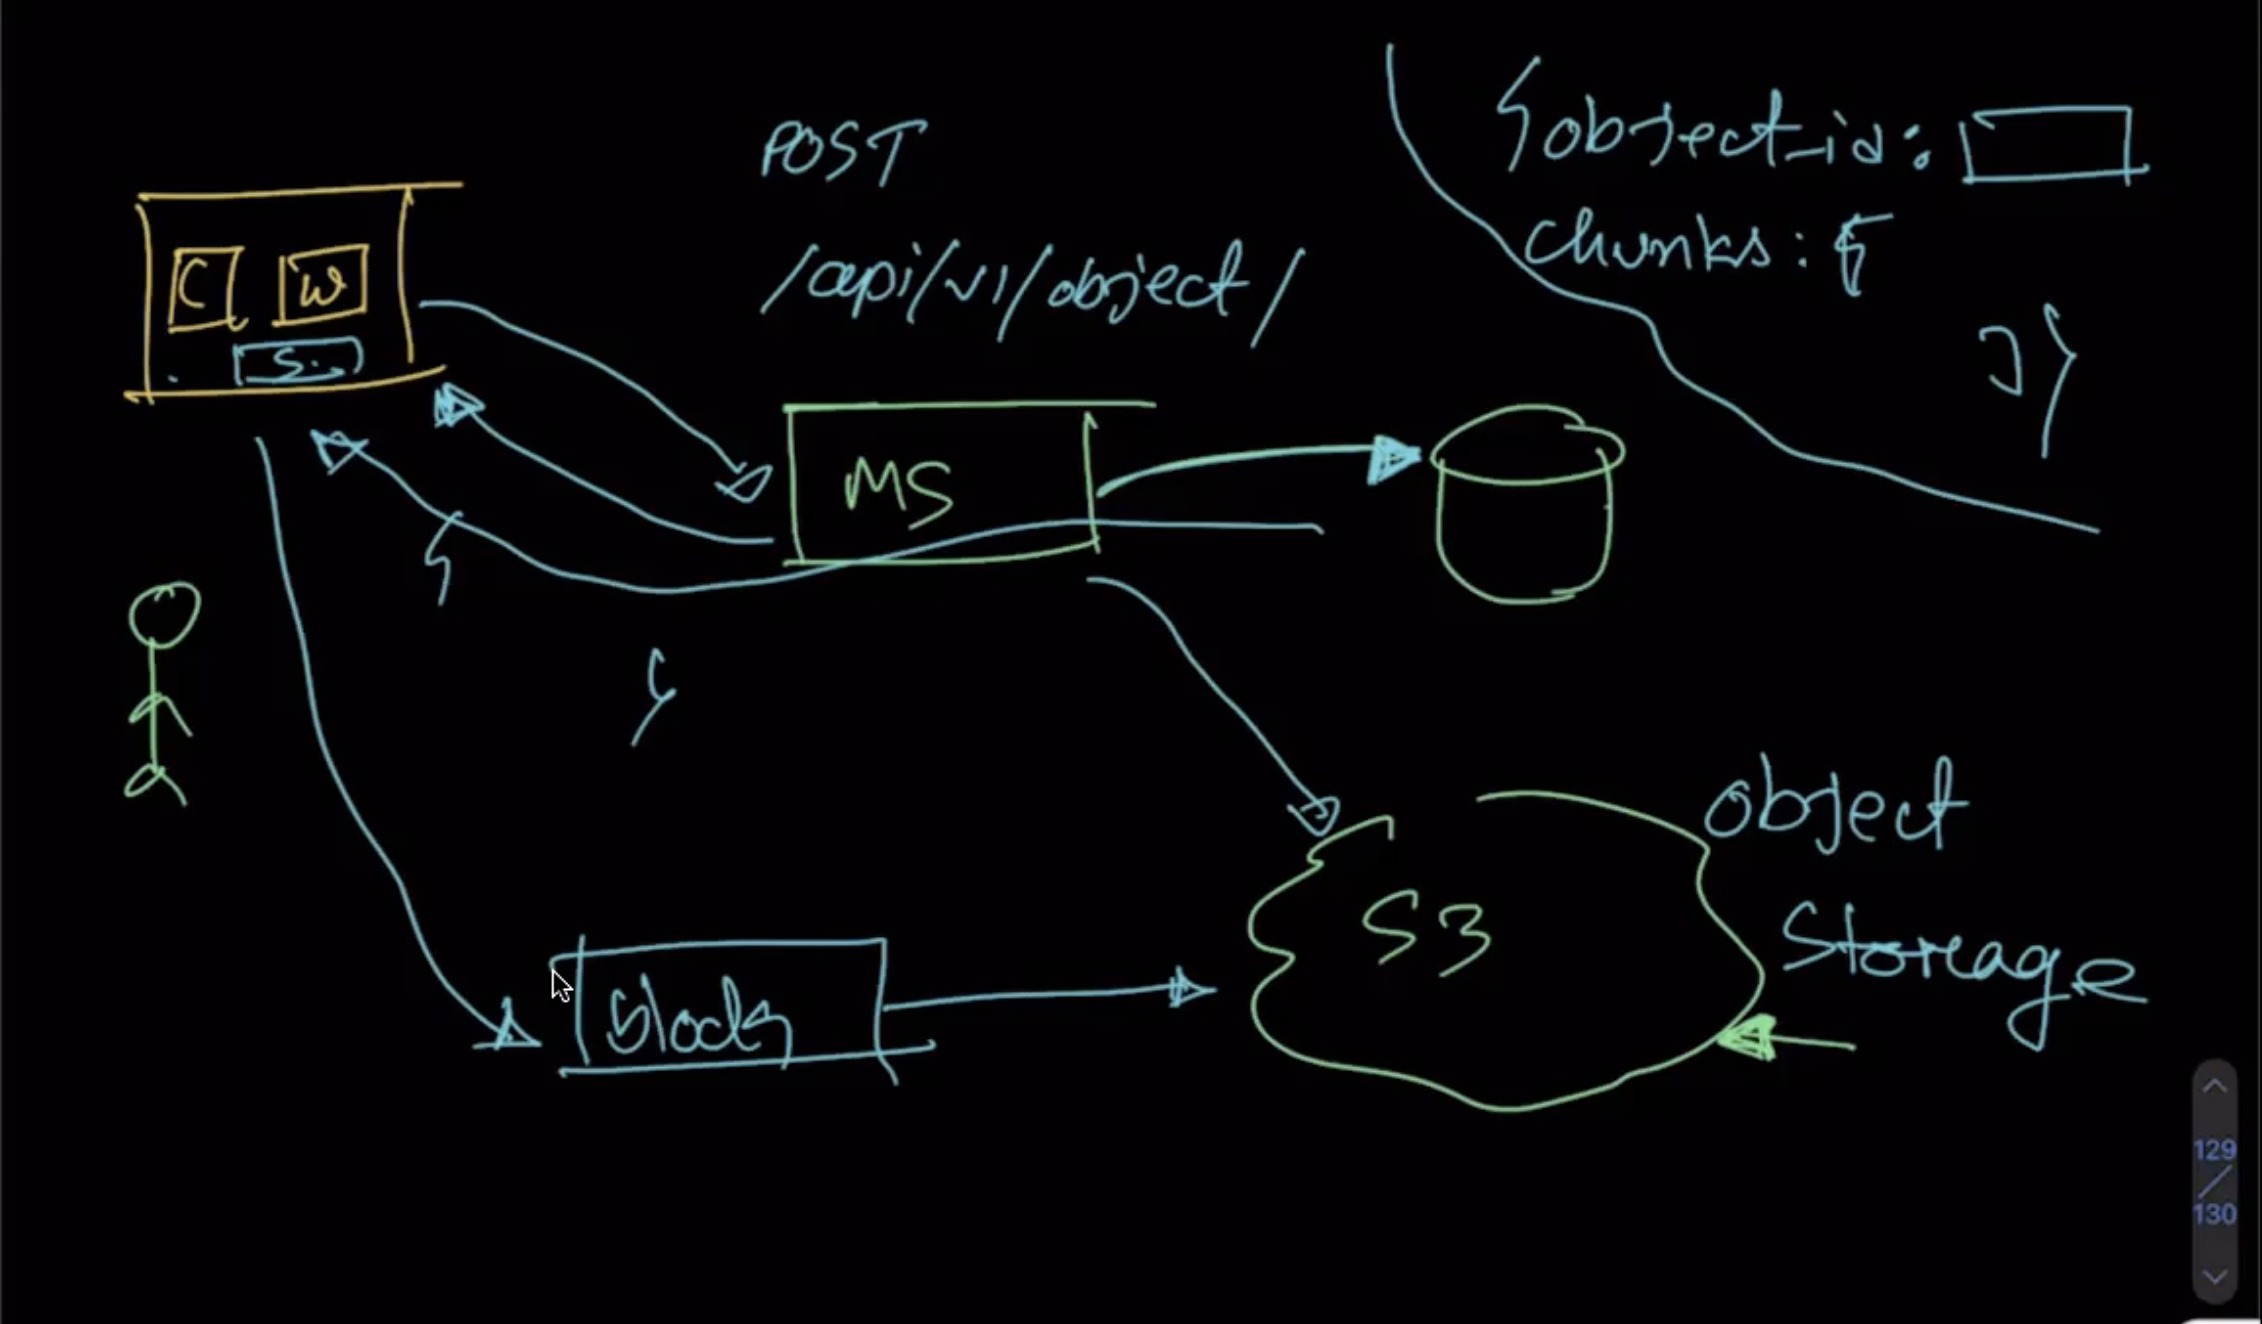 POST
/api/v1/object/
{object_id:
chunks: [
]}
C
W
S..
MS
{
}
S3
object
Storeage
129
/
130